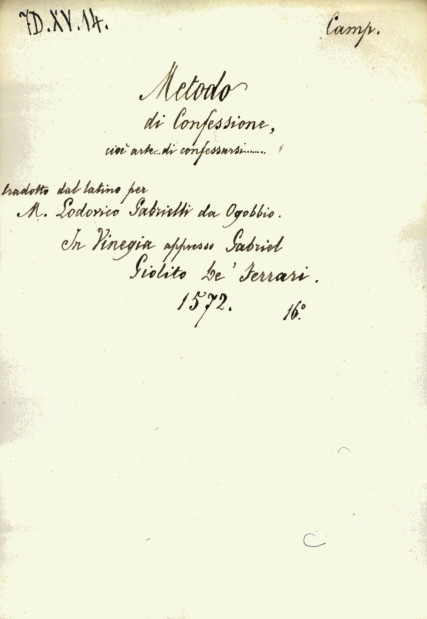 7D.XV.14.
Camp.
Metodo
di Confessione,
cioè arte di confessarsi.......
tradotto dal latino per
M. Lodovico Gabrielli da Ogobbio.
In Vinegia appresso Gabriel
Giolito De' Ferrari.
1572. 16.°